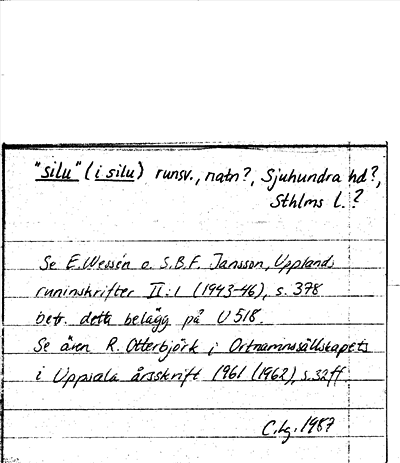 "silu" (i silu) runsv., natn?, Sjuhundra hd?,
Sthlms l.?
Se E. Wessén o. S.B.F. Jansson, Upplands
runinskrifter II:1 (1943-46), s. 378
betr. detta belägg på U 518.
Se även R. Otterbjörk i Ortnamnssällskapets
i Uppsala årsskrift 1961 (1962), s. 32 ff.
1987